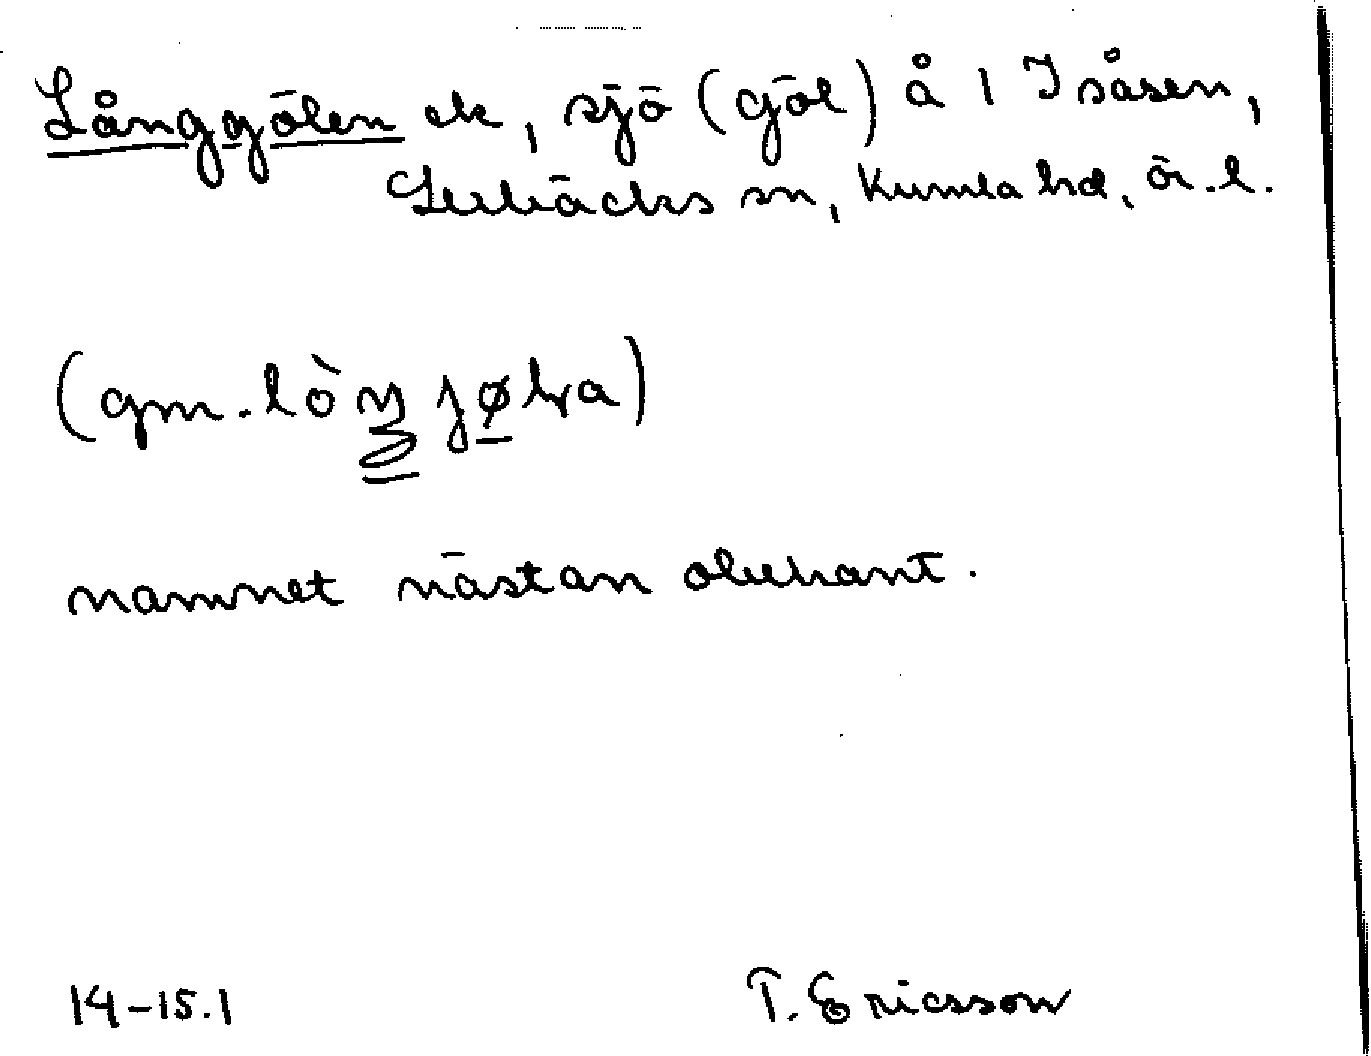 Långgölen ek, sjö (göl) å 1 Isåsen,
Lerbäcks sn, Kumla hd, ör. l.
(gm. lò
namnet nästan obekant.
14-15.1 T. Ericsson